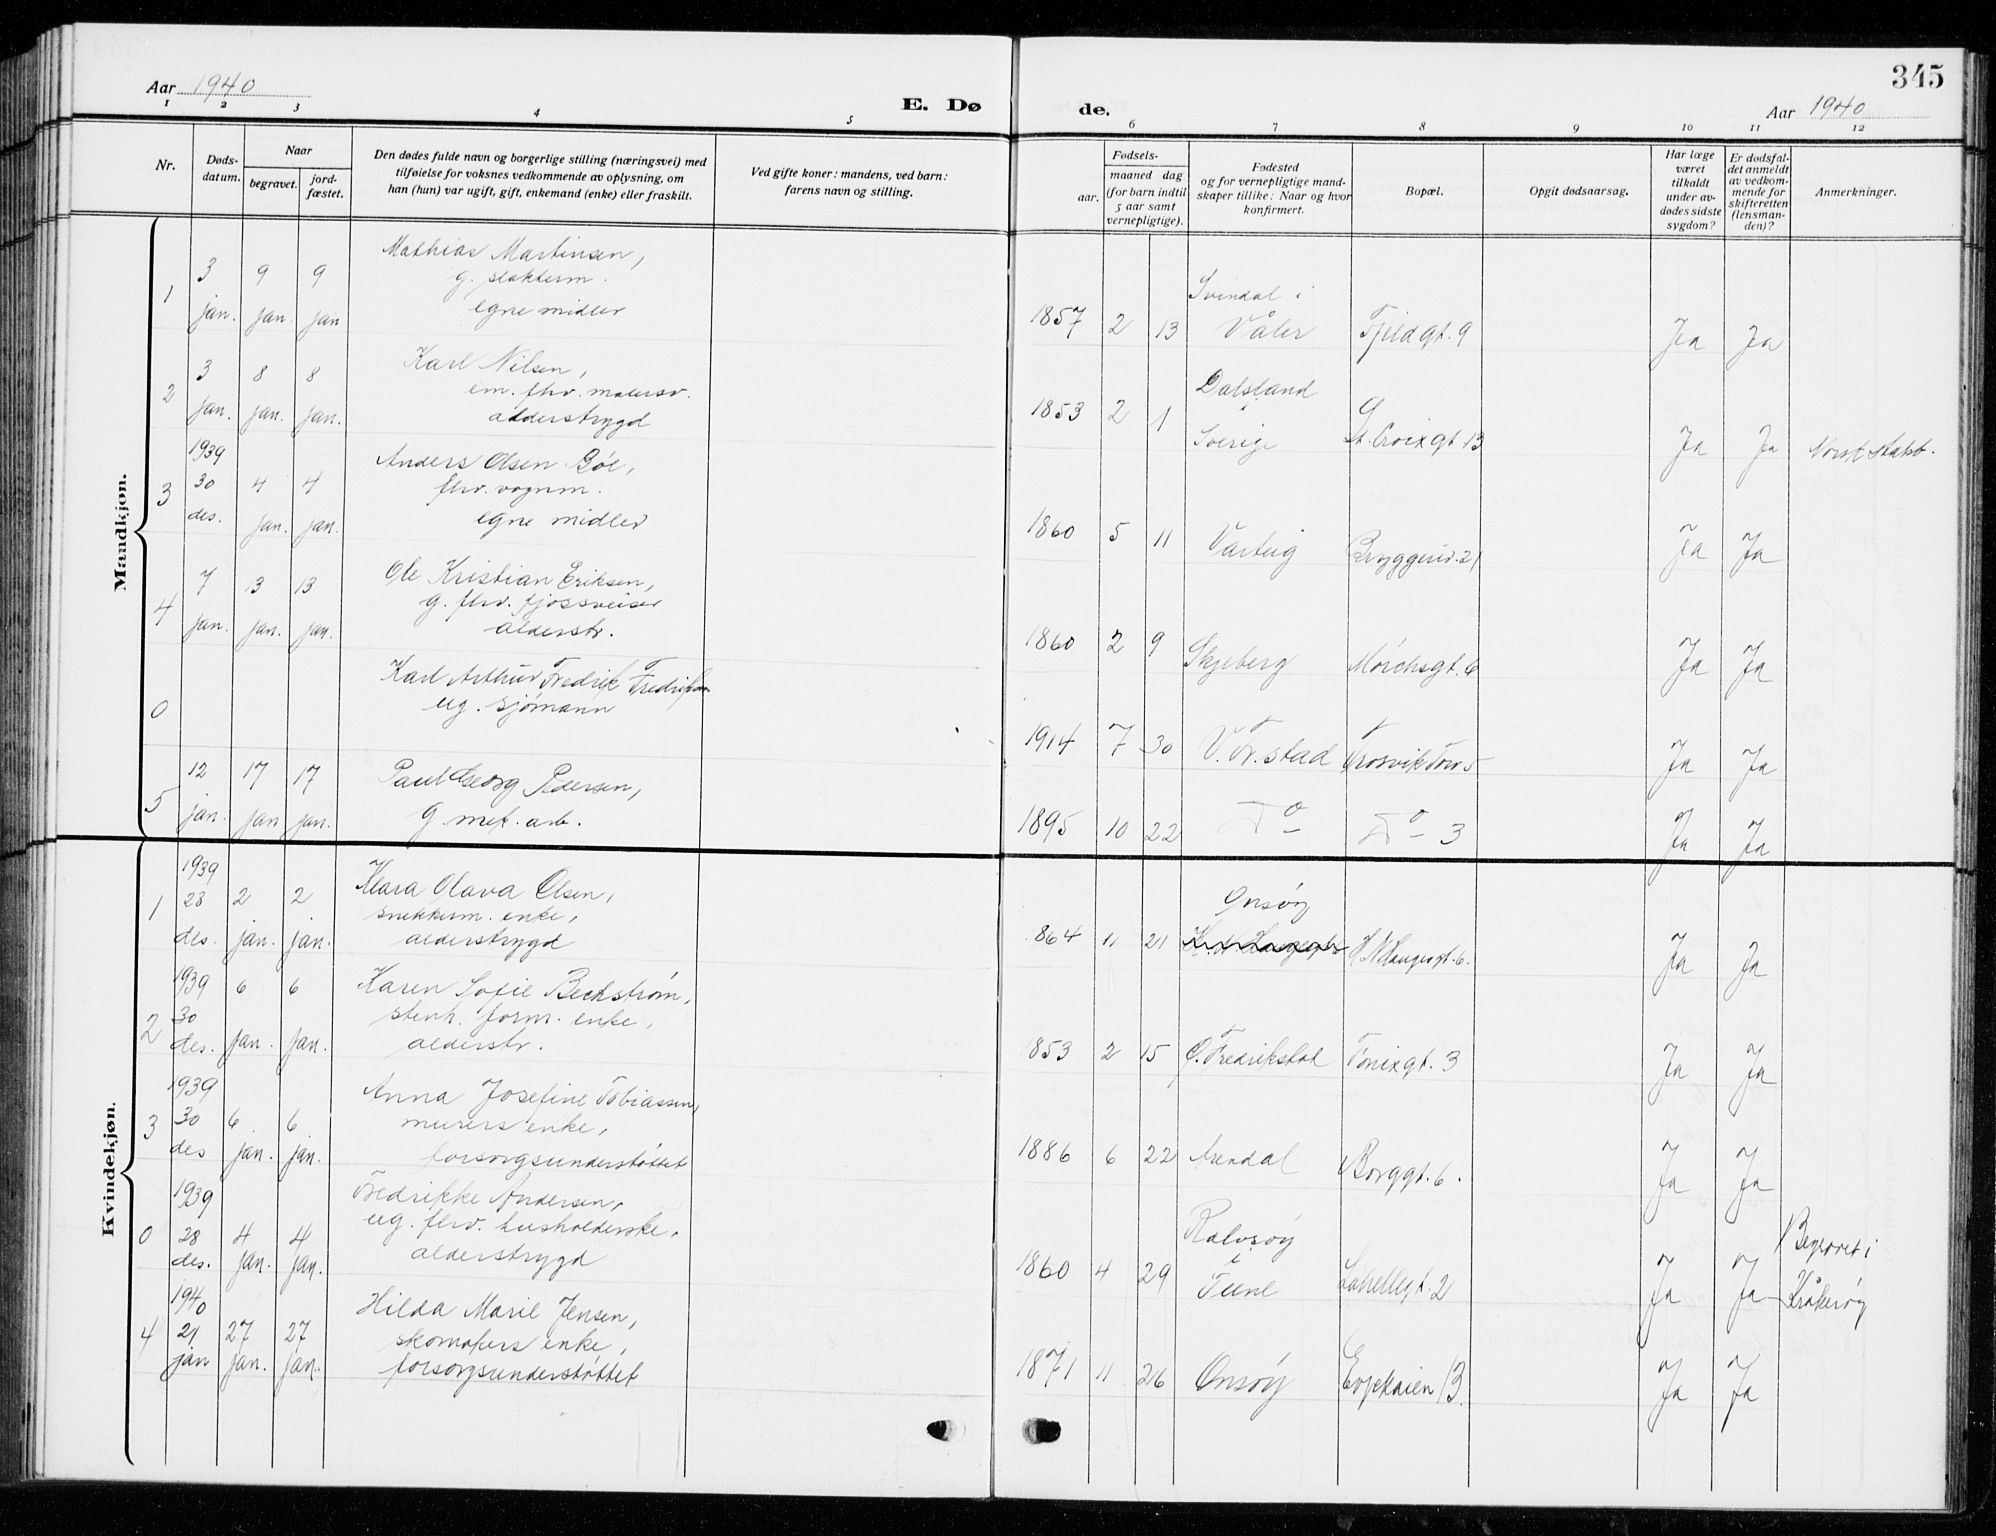 345
Aar 1940
E. Dø
de.
Aar 1940
1 2 3 4 5 6 7 8 9 10 11 12
Nr.
Døds-
datum.
Naar
begravet.
jord-
fæstet.
Den dødes fulde navn og borgerlige stilling (næringsvei) med
tilføielse for voksnes vedkommende av oplysning, om
han (hun) var ugift, gift, enkemand (enke) eller fraskilt.
Ved gifte koner: mandens, ved barn:
farens navn og stilling.
Fødsels-
aar.
maaned dag
(for barn indtil
5 aar samt
vernepligtige).
Fødested
og for vernepligtige mand-
skaper tillike: Naar og hvor
konfirmert.
Bopæl.
Opgit dødsaarsag.
Har læge
været
tilkaldt
under av-
dødes sidste
sygdom?
Er dødsfal-
det anmeldt
av vedkom-
mende for
skifteretten
(lensman-
den)?
Anmerkninger.
Mandkjøn.
1 3 jan. 9 jan. 9 jan
Mathias Martinsen,
g. slakterm.
egne midler
1857 2 13 Svindal i
Våler Fjeldgt. 9 Ja Ja
2 3 jan. 8 jan. 8 jan.
Karl Nilsen,
em. fhv. matersv.
alderstrygd
1853 2 1 Dalsland
i
Sverige St. Croixgt. 13 Ja Ja Norsk statsb.
3 1939
30 des. 4 jan. 4 jan.
Anders Olsen Bøe,
fhv. vognm.
egne midler
1860 5 11 Varteig Bryggeriv. 21 Ja Ja
4 7 jan. 13 jan. 13 jan.
Ole Kristian Eriksen,
g. fhv.
alderstr.
1860 2 9 Skjeberg Mørchsgt. 6 Ja Ja
0
Karl Arthur Fredrik Fredriksen
ug. sjømann
1914 7 30 V. Fr.stad Trosviktorv 5 Ja Ja
5 12 jan. 17 jan 17 jan.
Paul Georg Pedersen,
g. mek. arb.
1895 10 22 Do Do 3 Ja Ja
Kvindekjøn.
1 1939
28 des. 2 jan. 2 jan.
Klara Olava Olsen,
snekkerm. enke,
alderstrygd
1864 11 21 Onsøy
H. N. Haugesgt. 6. Ja Ja
2 1939
30 des. 6 jan. 6 jan.
Karen Sofie Beckstrøm,
stenh. form. enke,
alderstr.
1853 2 15 Ø. Fredrikstad Fønixgt. 3 Ja Ja
3 1939
30 des 6 jan. 6 jan.
Anna Josefine Tobiassen,
murers enke,
forsorgsunderstøttet
1886 6 22 Arendal Borggt. 6. Ja Ja
0 1939
28 des. 4 jan. 4 jan.
Fredrikke Andersen,
ug. fhv. husholderske.
alderstrygd
1860 4 29 Rolvsøy
i
Tune Lahellegt. 2 Ja Ja Begravet i
Kråkerøy
4 1940
21 jan 27 jan. 27 jan.
Hilda Marie Jensen,
skomakers enke,
forsorgsunderstøttet
1871 11 26 Onsøy Evjekaien 13. Ja Ja